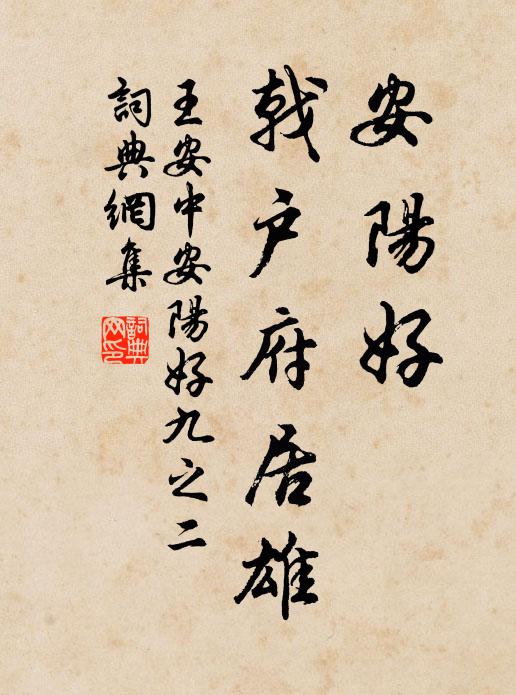 安陽好
戟户府居雄
王安中安陽好九之二
詞典網集
詞典
网印